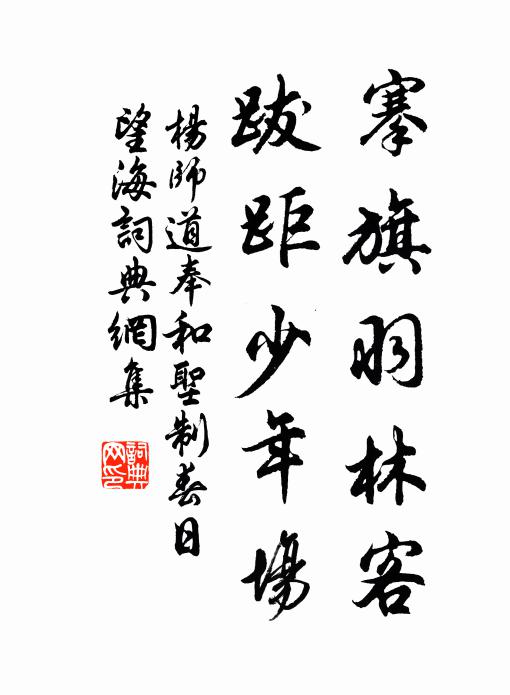 搴旗羽林客
跋距少年場
楊師道奉和聖制春日
望海詞典網集
詞典
网印